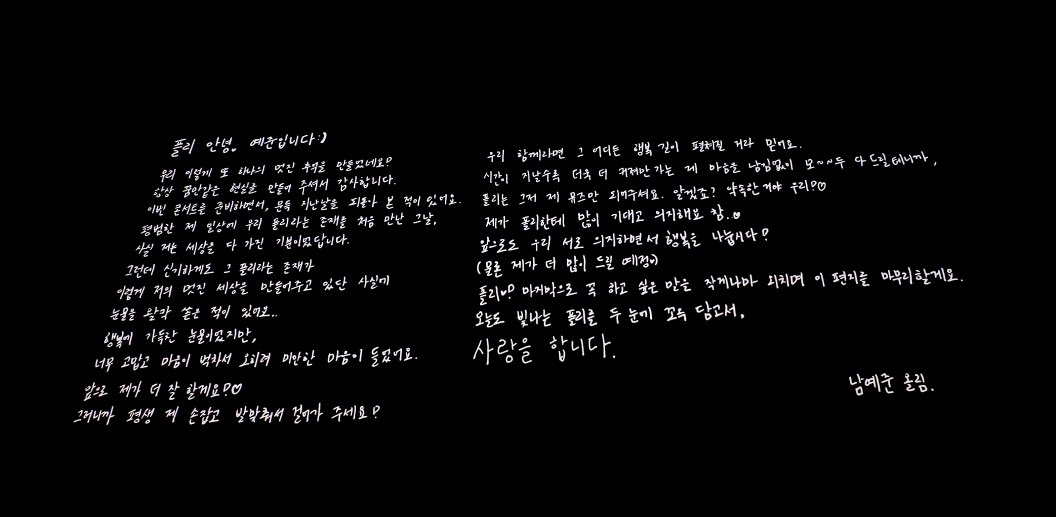 플리 안녕. 예준입니다:)
우리 이렇게 또 하나의 멋진 추억을 만들었네요?
항상 꿈만같은 현실을 만들어 주셔서 감사합니다.
이번 콘서트를 준비하면서, 문득 지난날을 되돌아 본 적이 있어요.
평범한 제 일상에 우리 플리라는 존재를 처음 만난 그날,
사실 저는 세상을 다 가진 기분이었답니다.
그런데 신기하게도 그 플리라는 존재가
이렇게 저의 멋진 세상을 만들어주고 있단 사실에
눈물을 왈칵 쏟은 적이 있어요..
행복에 가득찬 눈물이었지만,
너무 고맙고 마음이 벅차서 오히려 미안한 마음이 들었어요.
앞으로 제가 더 잘 할게요?♡
그러니까 평생 제 손잡고 발맞춰서 걸어가 주세요?
우리 함께라면 그 어디든 행복 길이 펼쳐질 거라 믿어요.
시간이 지날수록 더욱 더 커져만 가는 제 마음을 남김없이 모~~두 다 드릴테니까,
플리는 그저 제 뮤즈만 되어주세요. 알겠죠? 약속한거야 우리?♡
제가 플리한테 많이 기대고 의지해요 참.♡
앞으로도 우리 서로 의지하면서 행복을 나눕시다?
(물론 제가 더 많이 드릴 예정이)
플리야? 마지막으로 꼭 하고 싶은 말을 작게나마 외치며 이 편지를 마무리할게요.
오늘도 빛나는 플리를 두 눈에 꼬옥 담고서,
사랑을 합니다.
남예준 올림.